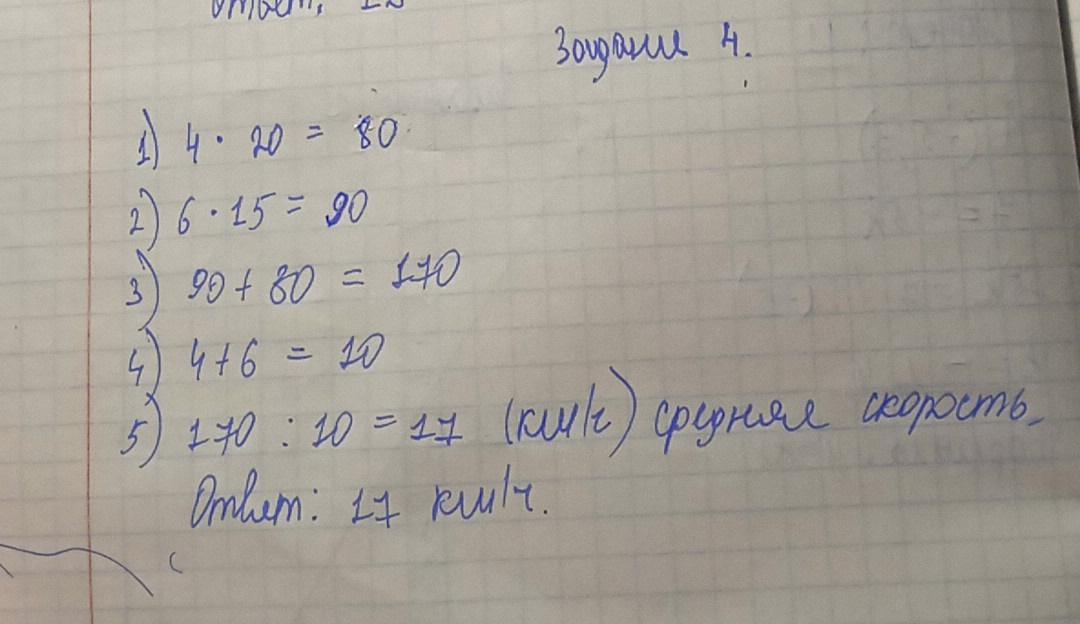 Ответ: 12
Задание 4.
1) 4 · 20 = 80
2) 6 · 15 = 90
3) 90 + 80 = 170
4) 4 + 6 = 10
5) 170 : 10 = 17 (км/ч) средняя скорость.
Ответ: 17 км/ч.